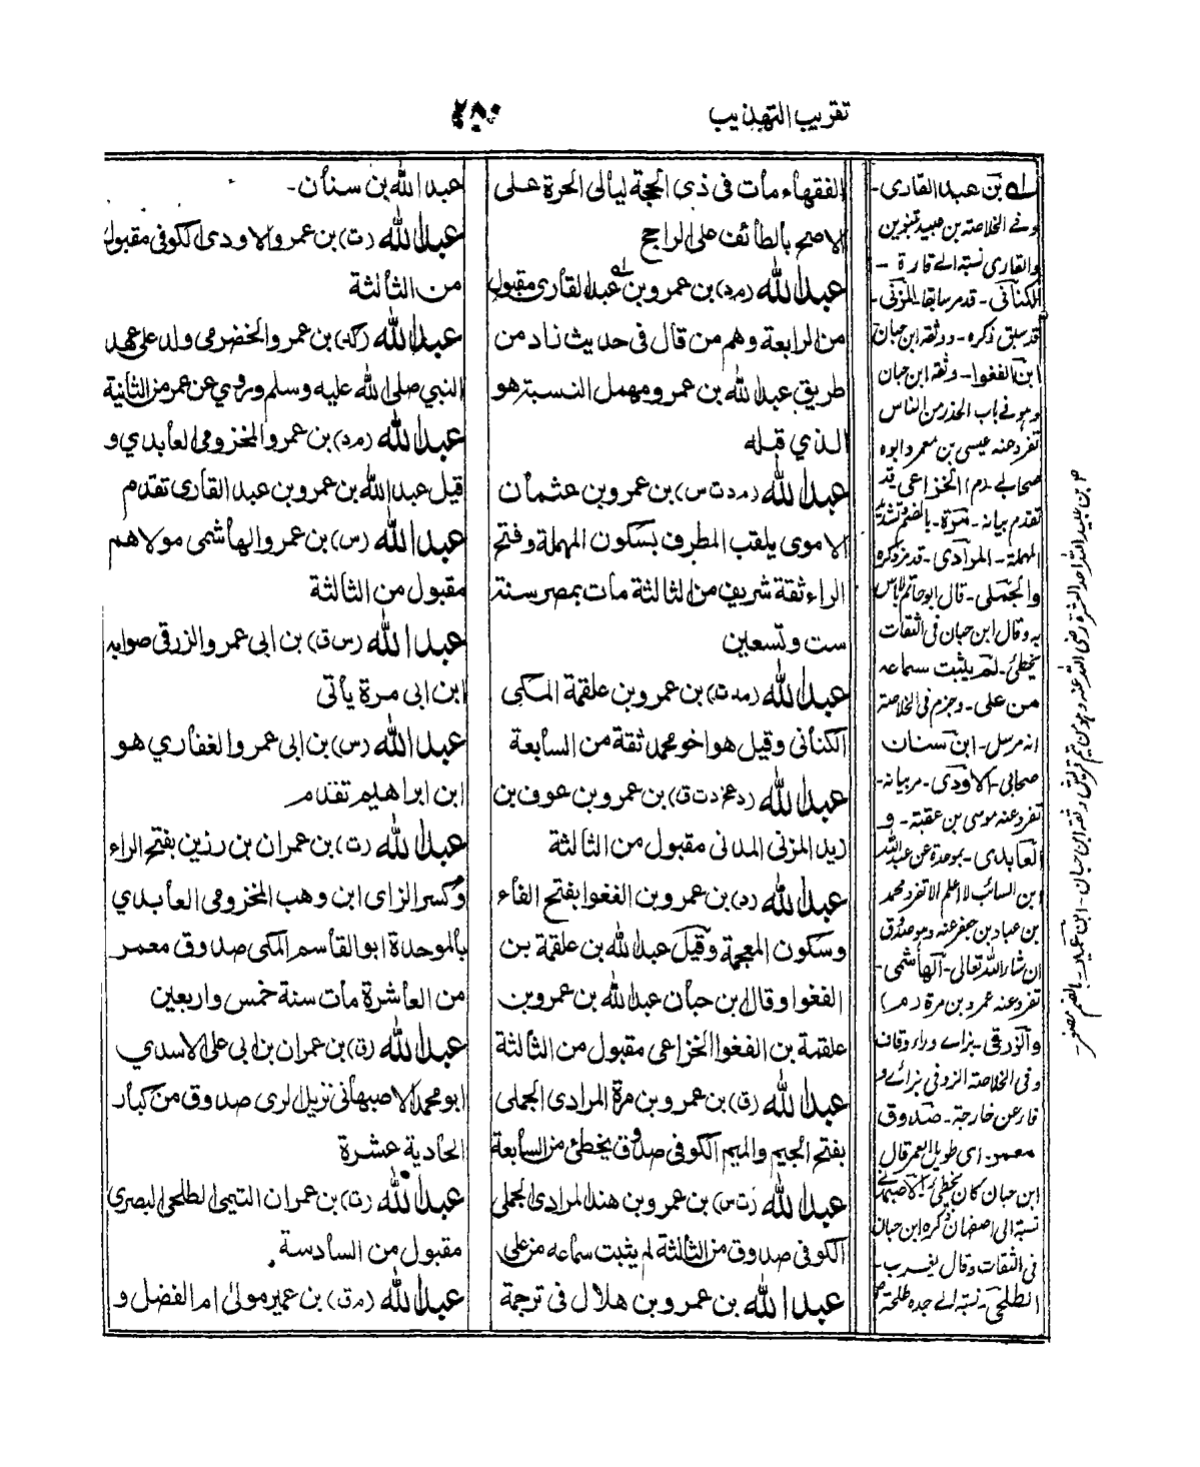 تقريب التهذيب
٢٨٠
الفقهاء مات في ذى الحجة ليالى الحرة على
الاصح بالطائف على الراجح
عبد الله (مد) بن عمرو بن عبد القارى مقبول
من الرابعة وهم من قال فى حديث ناد من
طريق عبد الله بن عمرو مهمل النسبة هو
الذي قبله
عبد الله (مدت س) بن عمرو بن عثمان
الاموى يلقب المطرف بسكون المهملة وفتح
الراء ثقة شريف من الثالثة مات بمصر سنة
ست وتسعين
عبد الله (مدت) بن عمرو بن علقمة المكى
الكنانى وقيل هو اخو محمد ثقة من السابعة
عبد الله (دعخ دت ق) بن عمرو بن عوف بن
زيد المزنى المدنى مقبول من الثالثة
عبد الله (د) بن عمرو بن الفغوا بفتح الفاء
وسكون المعجمة وقيل عبد الله بن علقمة بن
الفغوا وقال ابن حبان عبد الله بن عمرو بن
علقمة بن الفغوا الخزاعى مقبول من الثالثة
عبد الله (ق) بن عمرو بن مرة المرادى الجملى
بفتح الجيم والميم الكوفى صدوق يخطئ من السابعة
عبد الله (ت س) بن عمرو بن هند المرادى الجملى
الكوفى صدوق من الثالثة لم يثبت سماعه من على
عبد الله بن عمرو بن هلال فى ترجمة
عبد الله بن سنان-
عبد الله (ت) بن عمرو الاودى الكوفى مقبول
من الثالثة
عبد الله بن عمرو الحضرمى ولد على عهد
النبي صلى الله عليه وسلم وروي عن عمر من الثانية
عبد الله (مد) بن عمرو المخزومى العابدي و
قيل عبد الله بن عمرو بن عبد القارى تقدم
عبد الله (س) بن عمرو الهاشمى مولاهم
مقبول من الثالثة
عبد الله (س ق) بن ابى عمرو الزرقى صوابه
ابن ابى مرة يأتى
عبد الله (س) بن ابى عمرو الغفاري هو
ابن ابراهيم تقدم
عبد الله (ت) بن عمران بن رزين بفتح الراء
وكسر الزاى ابن وهب المخزومى العابدي
بالموحدة ابو القاسم المكى صدوق معمر
من العاشرة مات سنة خمس واربعين
عبد الله (ق) بن عمران بن ابى على الاسدي
ابو محمد الاصبهانى نزيل لرى صدوق من كبار
الحادية عشرة
عبد الله (ت) بن عمران التيمى الطلحى البصري
مقبول من السادسة
عبد الله (م ق) بن عمير مولى ام الفضل و
له بن عبد القارى-
وفے الخلاصة بن عبيد بتنوين
والقارى نسبة الے قارة -
الكنانى - قد مر سابقا - المزنى -
قد سبق ذكره - ووثقه ابن حبان
ابن الفغوا - وثقه ابن حبان
وهو فے باب الحذر من الناس
تفرد عنه عيسى بن معمر وابوه
صحابى الخزاعى قد
تقدم بيانه - مرة - بالضم وتشديد
المهملة - المرادى - قد مر ذكره
والجملى - قال ابو حاتم لا باس
به وقال ابن حبان فى الثقات
يخطئ - لم يثبت سماعه
من على - وجزم فى الخلاصة
انه مرسل - ابن سنان
صحابى - الاودى - مر بيانه -
تفرد عنه موسى بن عقبة - و
العابدى - بموحدة عن عبد الله
ابن السائب لا اعلم الا تفرد محمد
بن عباد بن جعفر عنه وهو صدوق
ان شاء الله تعالى - الهاشمى -
تفرد عنه عمرو بن مرة (مد)
والزرقى - بزاے وراء وقاف
وفى الخلاصة الزوفى بزاے و
فاء عن خارجة - صدوق
معمر - اى طويل العمر قال
ابن حبان كان يخطئ - الاصبهانے
نسبة الى اصفهان ذكره ابن حبان
فى الثقات وقال يغرب -
الطلحى - نسبة الے جده طلحة
بن عبيد الله احد العشرة رضى الله عنه وهو من تيم قريش وثقه ابن حبان - ابن عمير - بالضم مصغر -